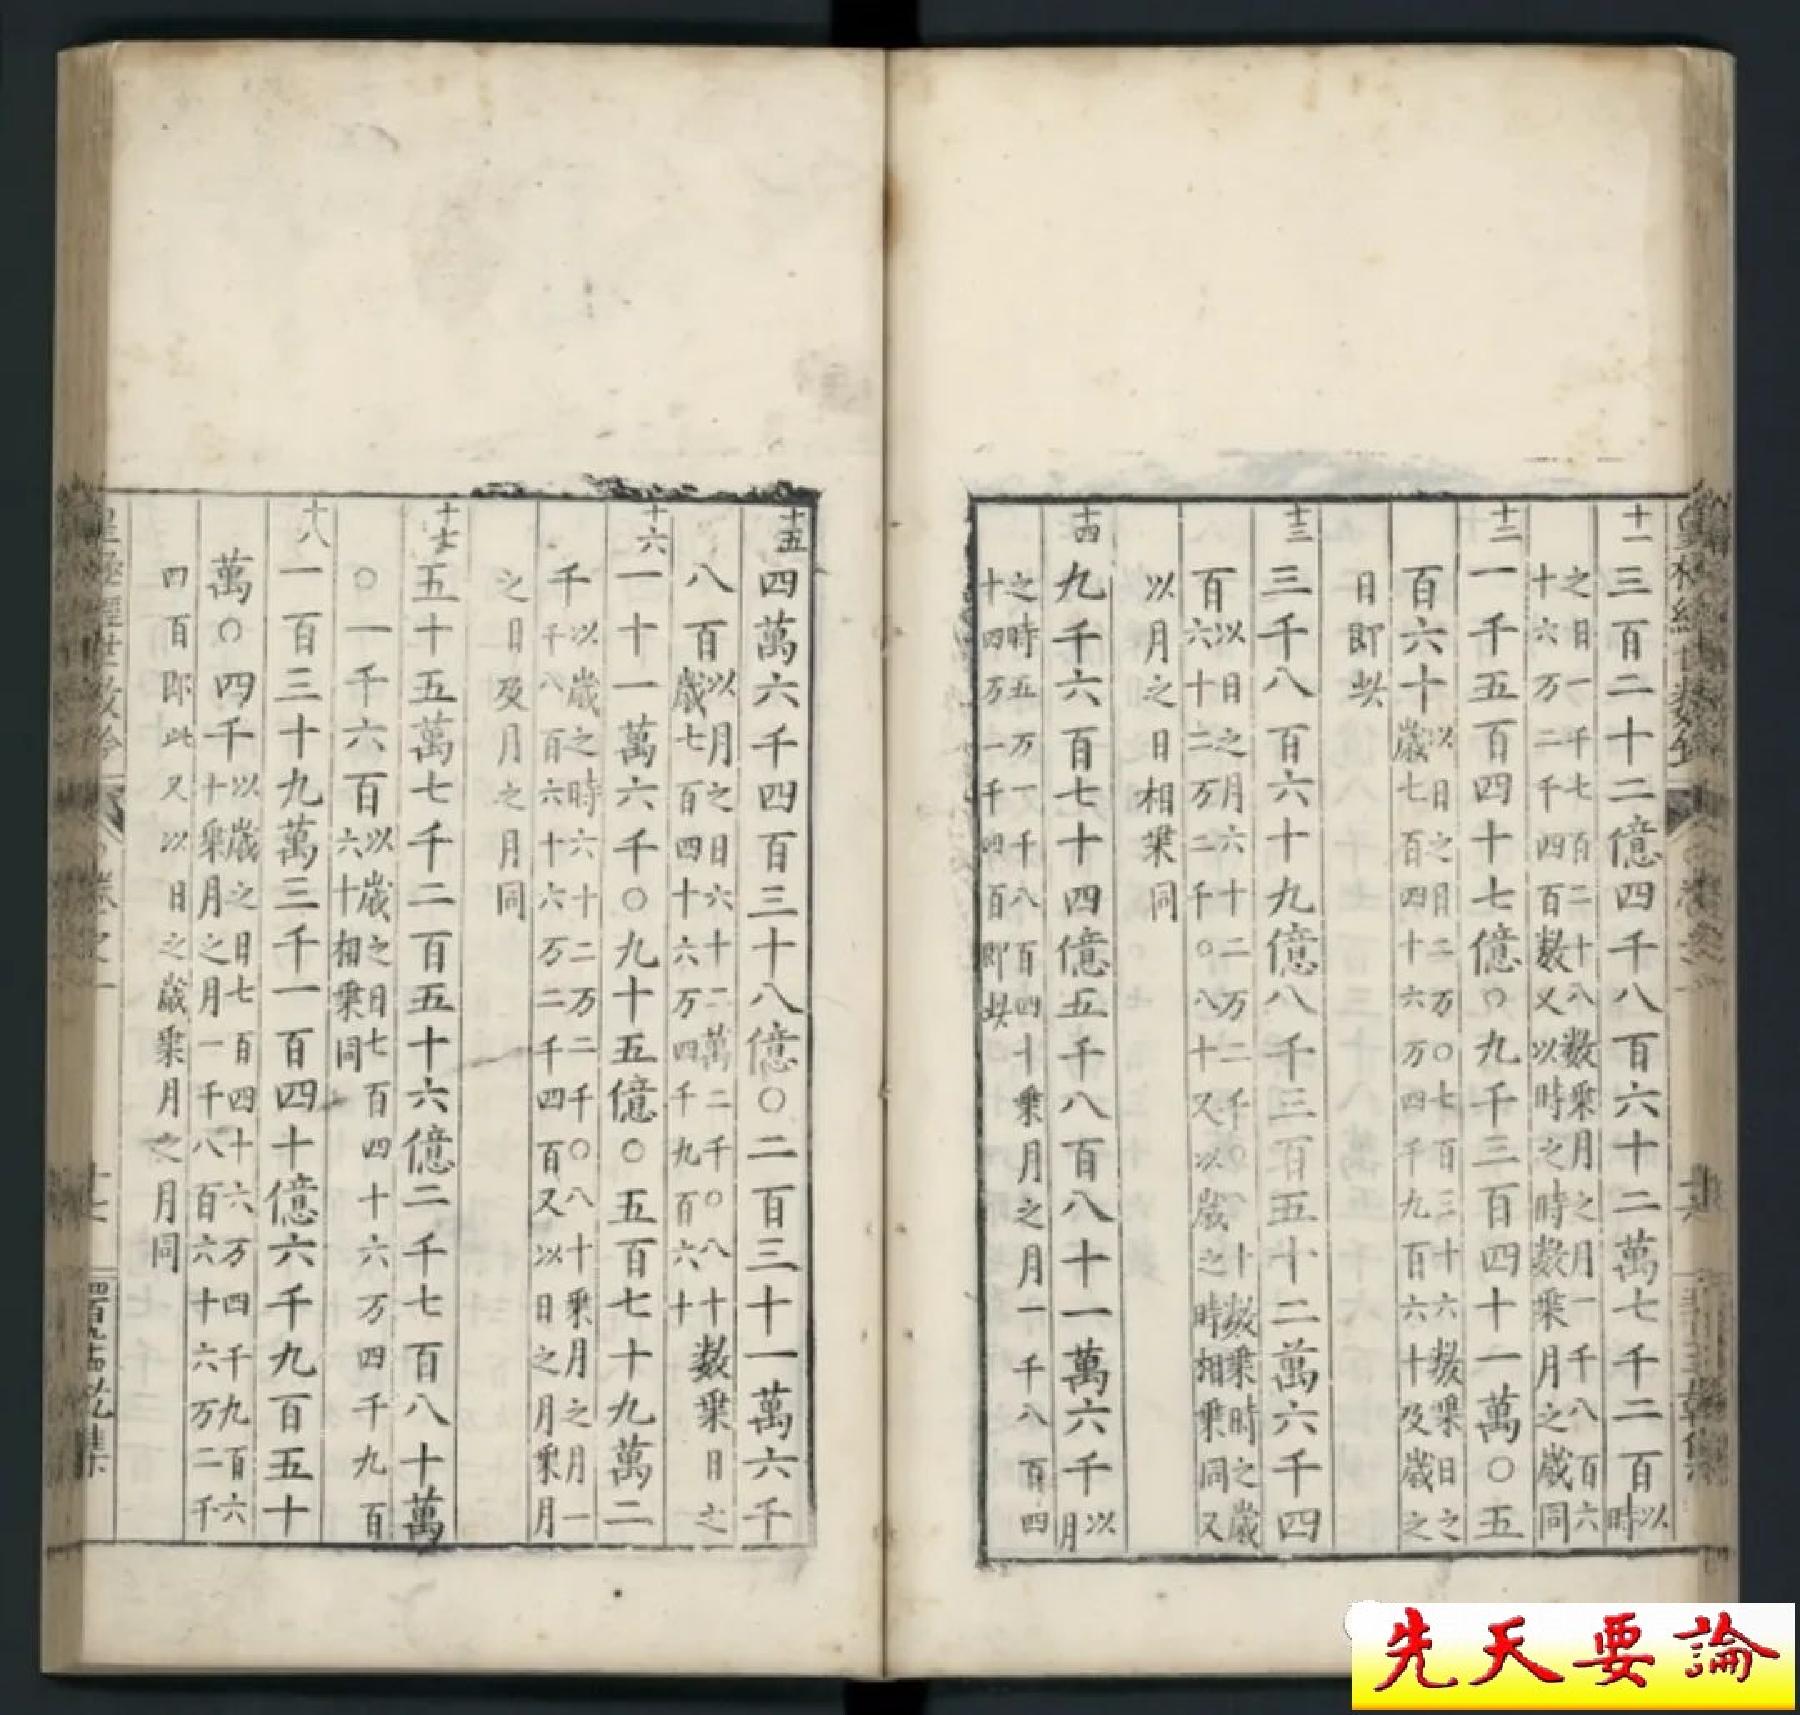 十一 三百二十二億四千八百六十二萬七千二百 以時
之日一千七百二十八数乗月之月一千八百六
十六万二千四百数又以時之時数乗月之歲同
十二 一千五百四十七億〇九千三百四十一萬〇五
百六十 以日之日二万〇七百三十六数乗日之
歲七百四十六万四千九百六十及歲之
日即此
十三 三千八百六十九億八千三百五十二萬六千四
百 以日之月六十二万二千〇八十数乗時之歲
六十二万二千〇八十又以歲之時相乗同又
以月之日相乗同
十四 九千六百七十四億五千八百八十一萬六千 以月
之時五万一千八百四十乗月之月一千八百四
十四万一千四百即此
十五 四萬六千四百三十八億〇二百三十一萬六千
八百 以月之日六十二萬二千〇八十数乗日之
歲七百四十六万四千九百六十
十六 一十一萬六千〇九十五億〇五百七十九萬二
千 以歲之時六十二万二千〇八十乗月之月一
千八百六十六万二千四百又以日之月乗月
之日及月之月同
十七 五十五萬七千二百五十六億二千七百八十萬
〇一千六百 以歲之日七百四十六万四千九百
六十相乗同
十八 一百三十九萬三千一百四十億六千九百五十
萬〇四千 以歲之日七百四十六万四千九百六
十乗月之月一千八百六十六万二千
四百即此又以日之歲乗月之月同
皇極經世数鈐 卷之一
先天要論